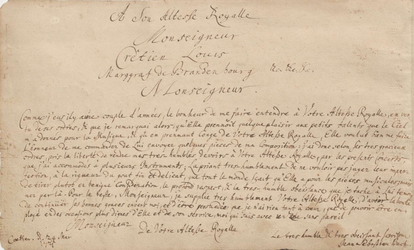 A Son Altesse Royalle
Monseigneur
Crêtien Louis
Marggraf de Brandenbourg &c. &c. &c.
Monseigneur.
Comme j'eus il y a une couple d'années, le bonheur de me faire entendre à Votre Altesse Royalle, en ver
tu de ses ordres, & que je remarquai alors, qu'Elle prennoit quelque plaisir aux petits talents que le Ciel
m'a donnés pour la Musique, & qu'en prennant Conge de Votre Altesse Royalle, Elle voulut bien me faire
l'honneur de me commander de Lui envoyer quelques pieces de ma Composition: j'ai donc selon ses tres gracieux
ordres, pris la liberté de rendre mes tres-humbles devoirs à Votre Altesse Royalle, par les presents Concerts,
que j'ai accommodés à plusieurs Instruments; La priant tres-humblement de ne vouloir pas juger leur imper
fection, à la rigueur du gout fin et delicat, que tout le monde sçait qu'Elle a pour les piéces musicales; mais
de tirer plutot en benigne Consideration, le profond respect, & la tres-humble obeissance que je tache à Lui
par là. Pour le reste, Monseigneur, je supplie tres humblement Votre Altesse Royalle, d'avoir la bonté
de continüer ses bonnes graces envers moi, et d'être persuadée que je n'ai rien tant à coeur, que de pouvoir être em
ployé en des occasions plus dignes d'Elle et de son service, moi qui suis avec un zele sans pareil
Monseigneur
De Votre Altesse Royalle
Coethen. d. 24 Mar
1721
Le tres humble & tres obeissant serviteur
Jean Sebastien Bach.